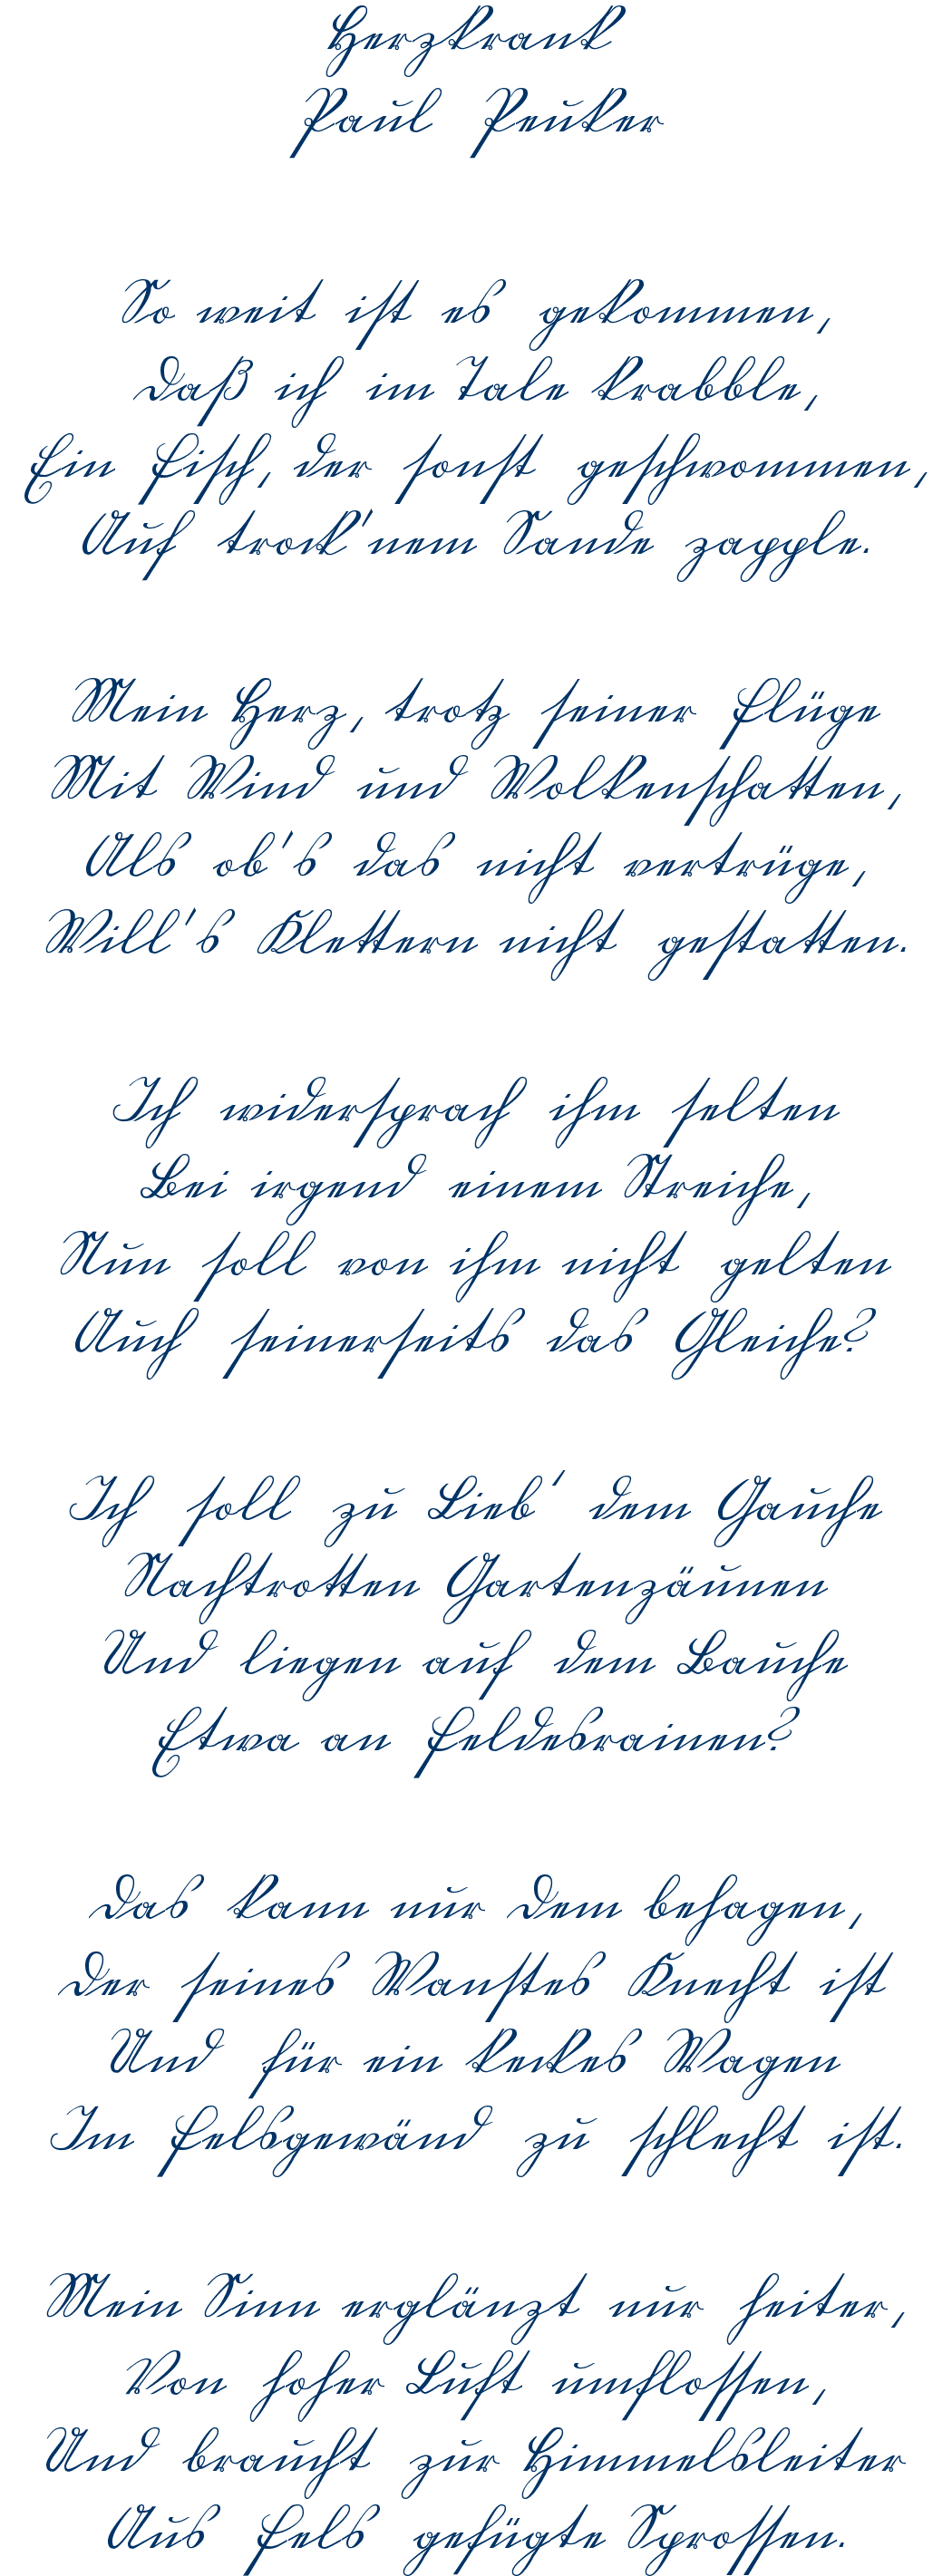 Herzkrank
Paul Peuker
So weit ist es gekommen,
Daß ich im Tale krabble,
Ein Fisch, der sonst geschwommen,
Auf trock'nem Sande zapple.
Mein Herz, trotz seiner Flüge
Mit Wind und Wolkenschatten,
Als ob's das nicht vertrüge,
Will's Klettern nicht gestatten.
Ich widersprach ihm selten
Bei irgend einem Streiche,
Nun soll von ihm nicht gelten
Auch seinerseits das Gleiche?
Ich soll zu Lieb' dem Gauche
Nachtrotten Gartenzäunen
Und liegen auf dem Bauche
Etwa an Feldesrainen?
Das kann nur Dem behagen,
Der seines Wanstes Knecht ist
Und für ein keckes Wagen
Im Felsgewänd zu schlecht ist.
Mein Sinn erglänzt nur heiter,
Von hoher Luft umflossen,
Und braucht zur Himmelsleiter
Aus Fels gefügte Sprossen.